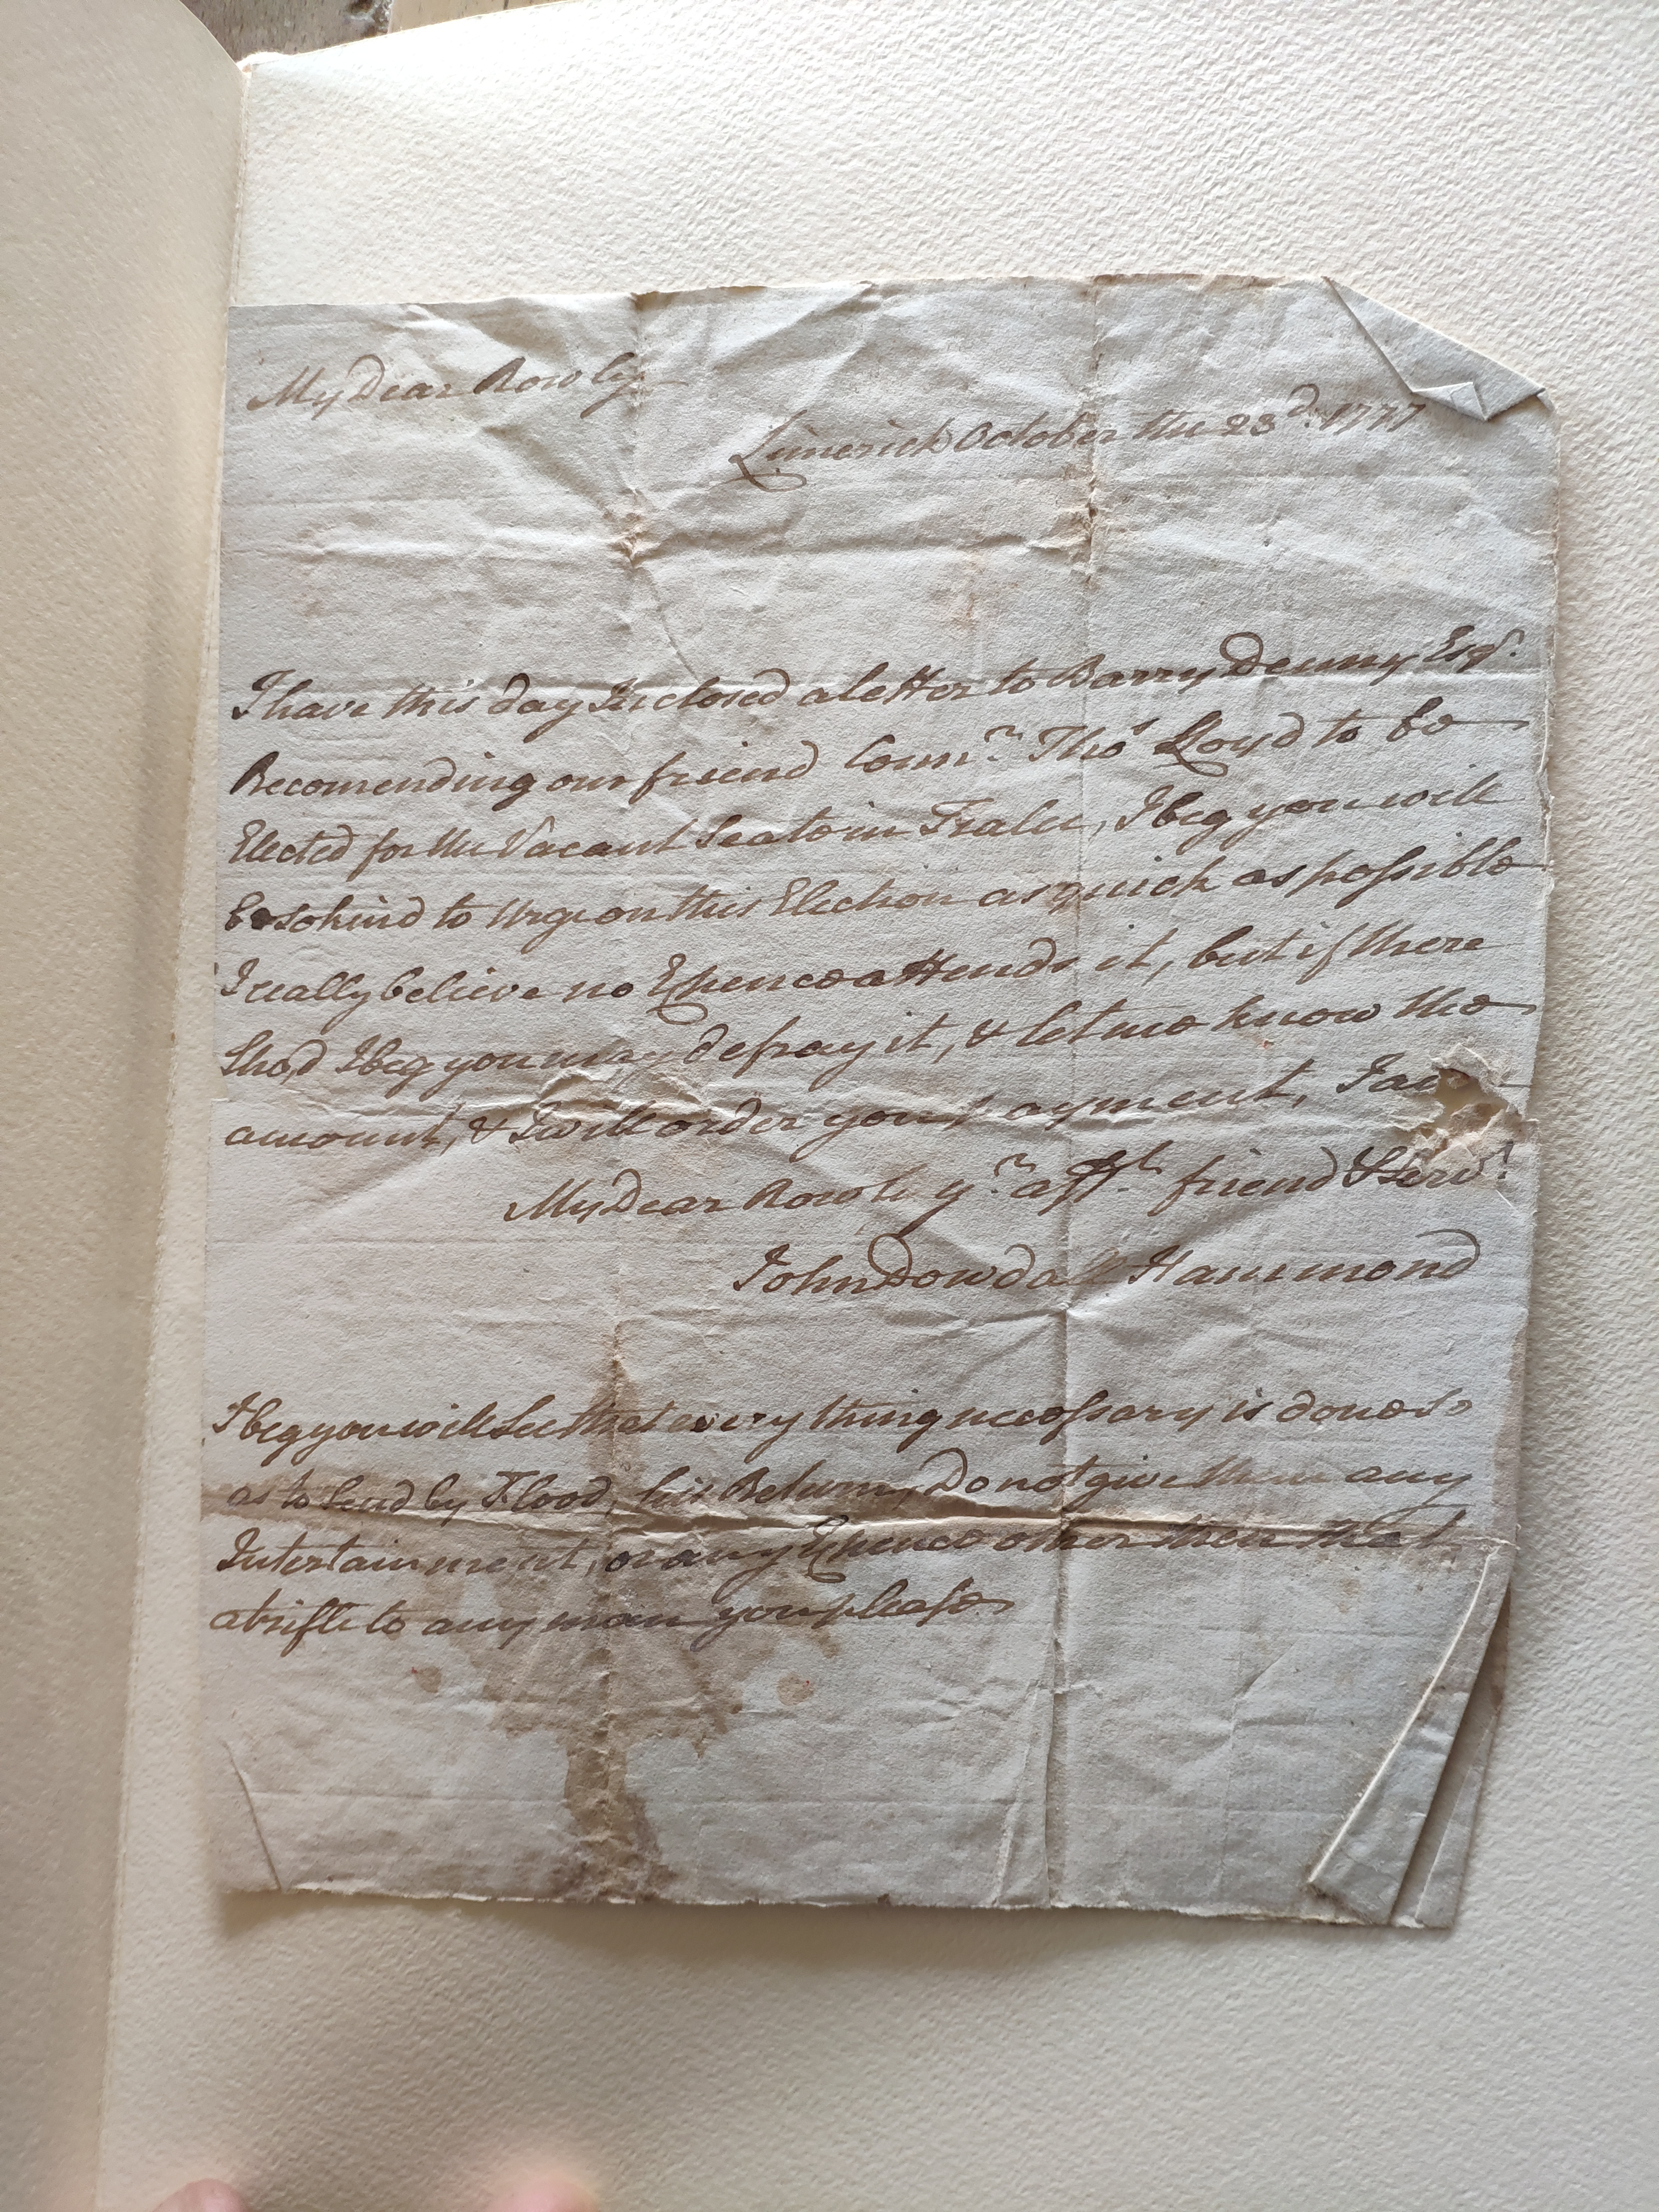 My Dear Rowly
Limerick October the 23d. 1777
I have this day Inclosed a letter to Barry Denny Esqr.
Recomending our friend Counr. Thos Lloyd to be
Elected for the Vacant Seate in Tralee, I beg you will
be so kind to Urge on this Election as quick as possible
I really believe no Expence attends it, but if there
Shod I beg you may defray it, & let me know the
amount, & I will order you payment, I am
My Dear Rowly yr. afft. friend & Servt.
John Dowdall Hammond
I beg you will See that every thing necessary is done so
as to Send by Flood, his Return, Do not give them any
Intertainment, or any Expence other then that
a trifle to any man you please